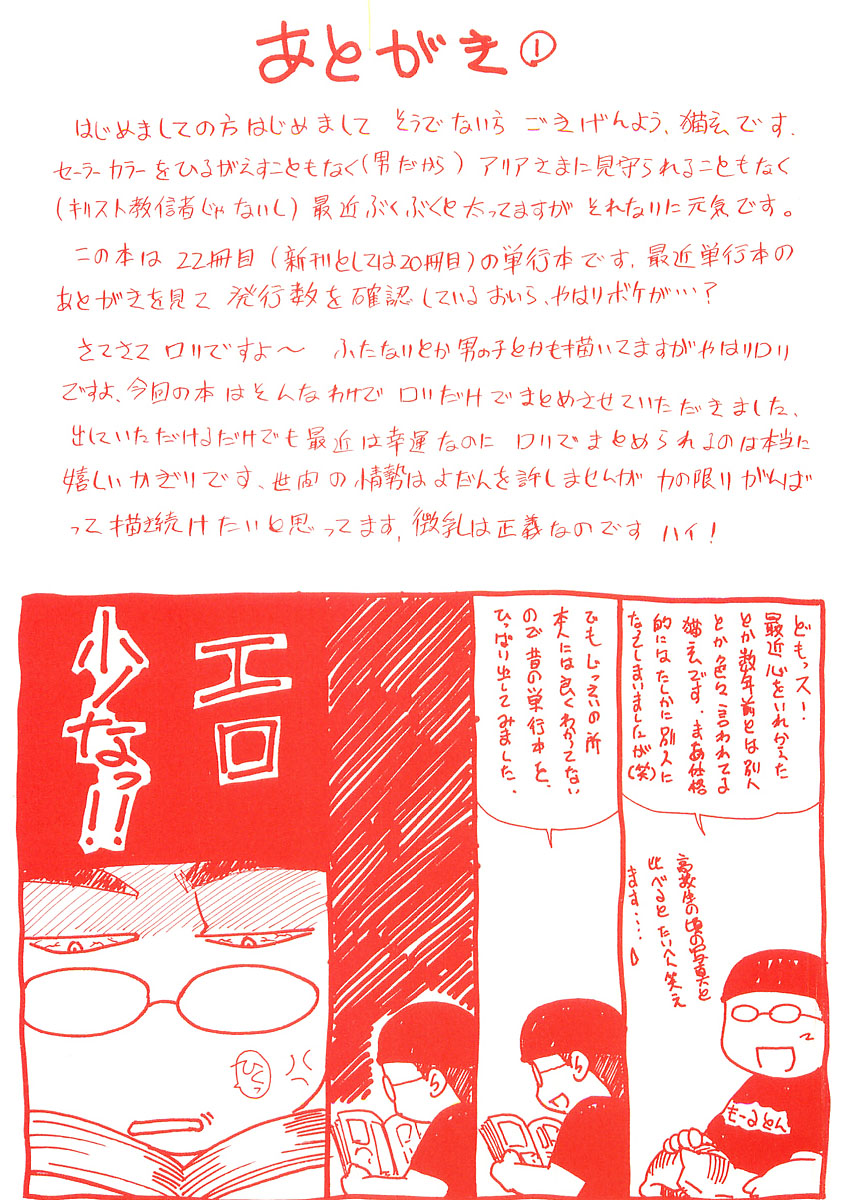 あとがき①
はじめましての方はじめまして そうでない方 ごきげんよう、猫玄です.
セーラーカラーをひるがえすこともなく(男だから) アリアさまに見守られることもなく
(キリスト教信者じゃないし) 最近ぶくぶくと太ってますが それなりに元気です。
この本は 22冊目 (新刊としては20冊目)の単行本です. 最近単行本の
あとがきを見て 発行数を確認しているおいら、やはりボケが…?
さてさて ロリですよ〜 ふたなりとか男の子とかも描いてますがやはりロリ
ですよ、今回の本はそんなわけで ロリだけでまとめさせていただきました、
出していただけるだけでも最近は幸運なのに ロリでまとめられるのは本当に
嬉しいかぎりです、世間の情勢はよだんを許しませんが 力の限りがんば
って描き続けたいと思ってます, 微乳は正義なのです ハイ!
どもっス!
最近心をいれかえた
とか数年前とは別人
とか色々言われてる
猫玄です. まあ体格
的にはたしかに別人に
なってしまいましたが(笑)
高校生の頃の写真と
比べると たいへん笑え
ます....
もーるとん
でもじっさいの所
本人には良くわかってない
ので昔の単行本を、
ひっぱり出してみました.
エロ
少なっ!!
ひくっ